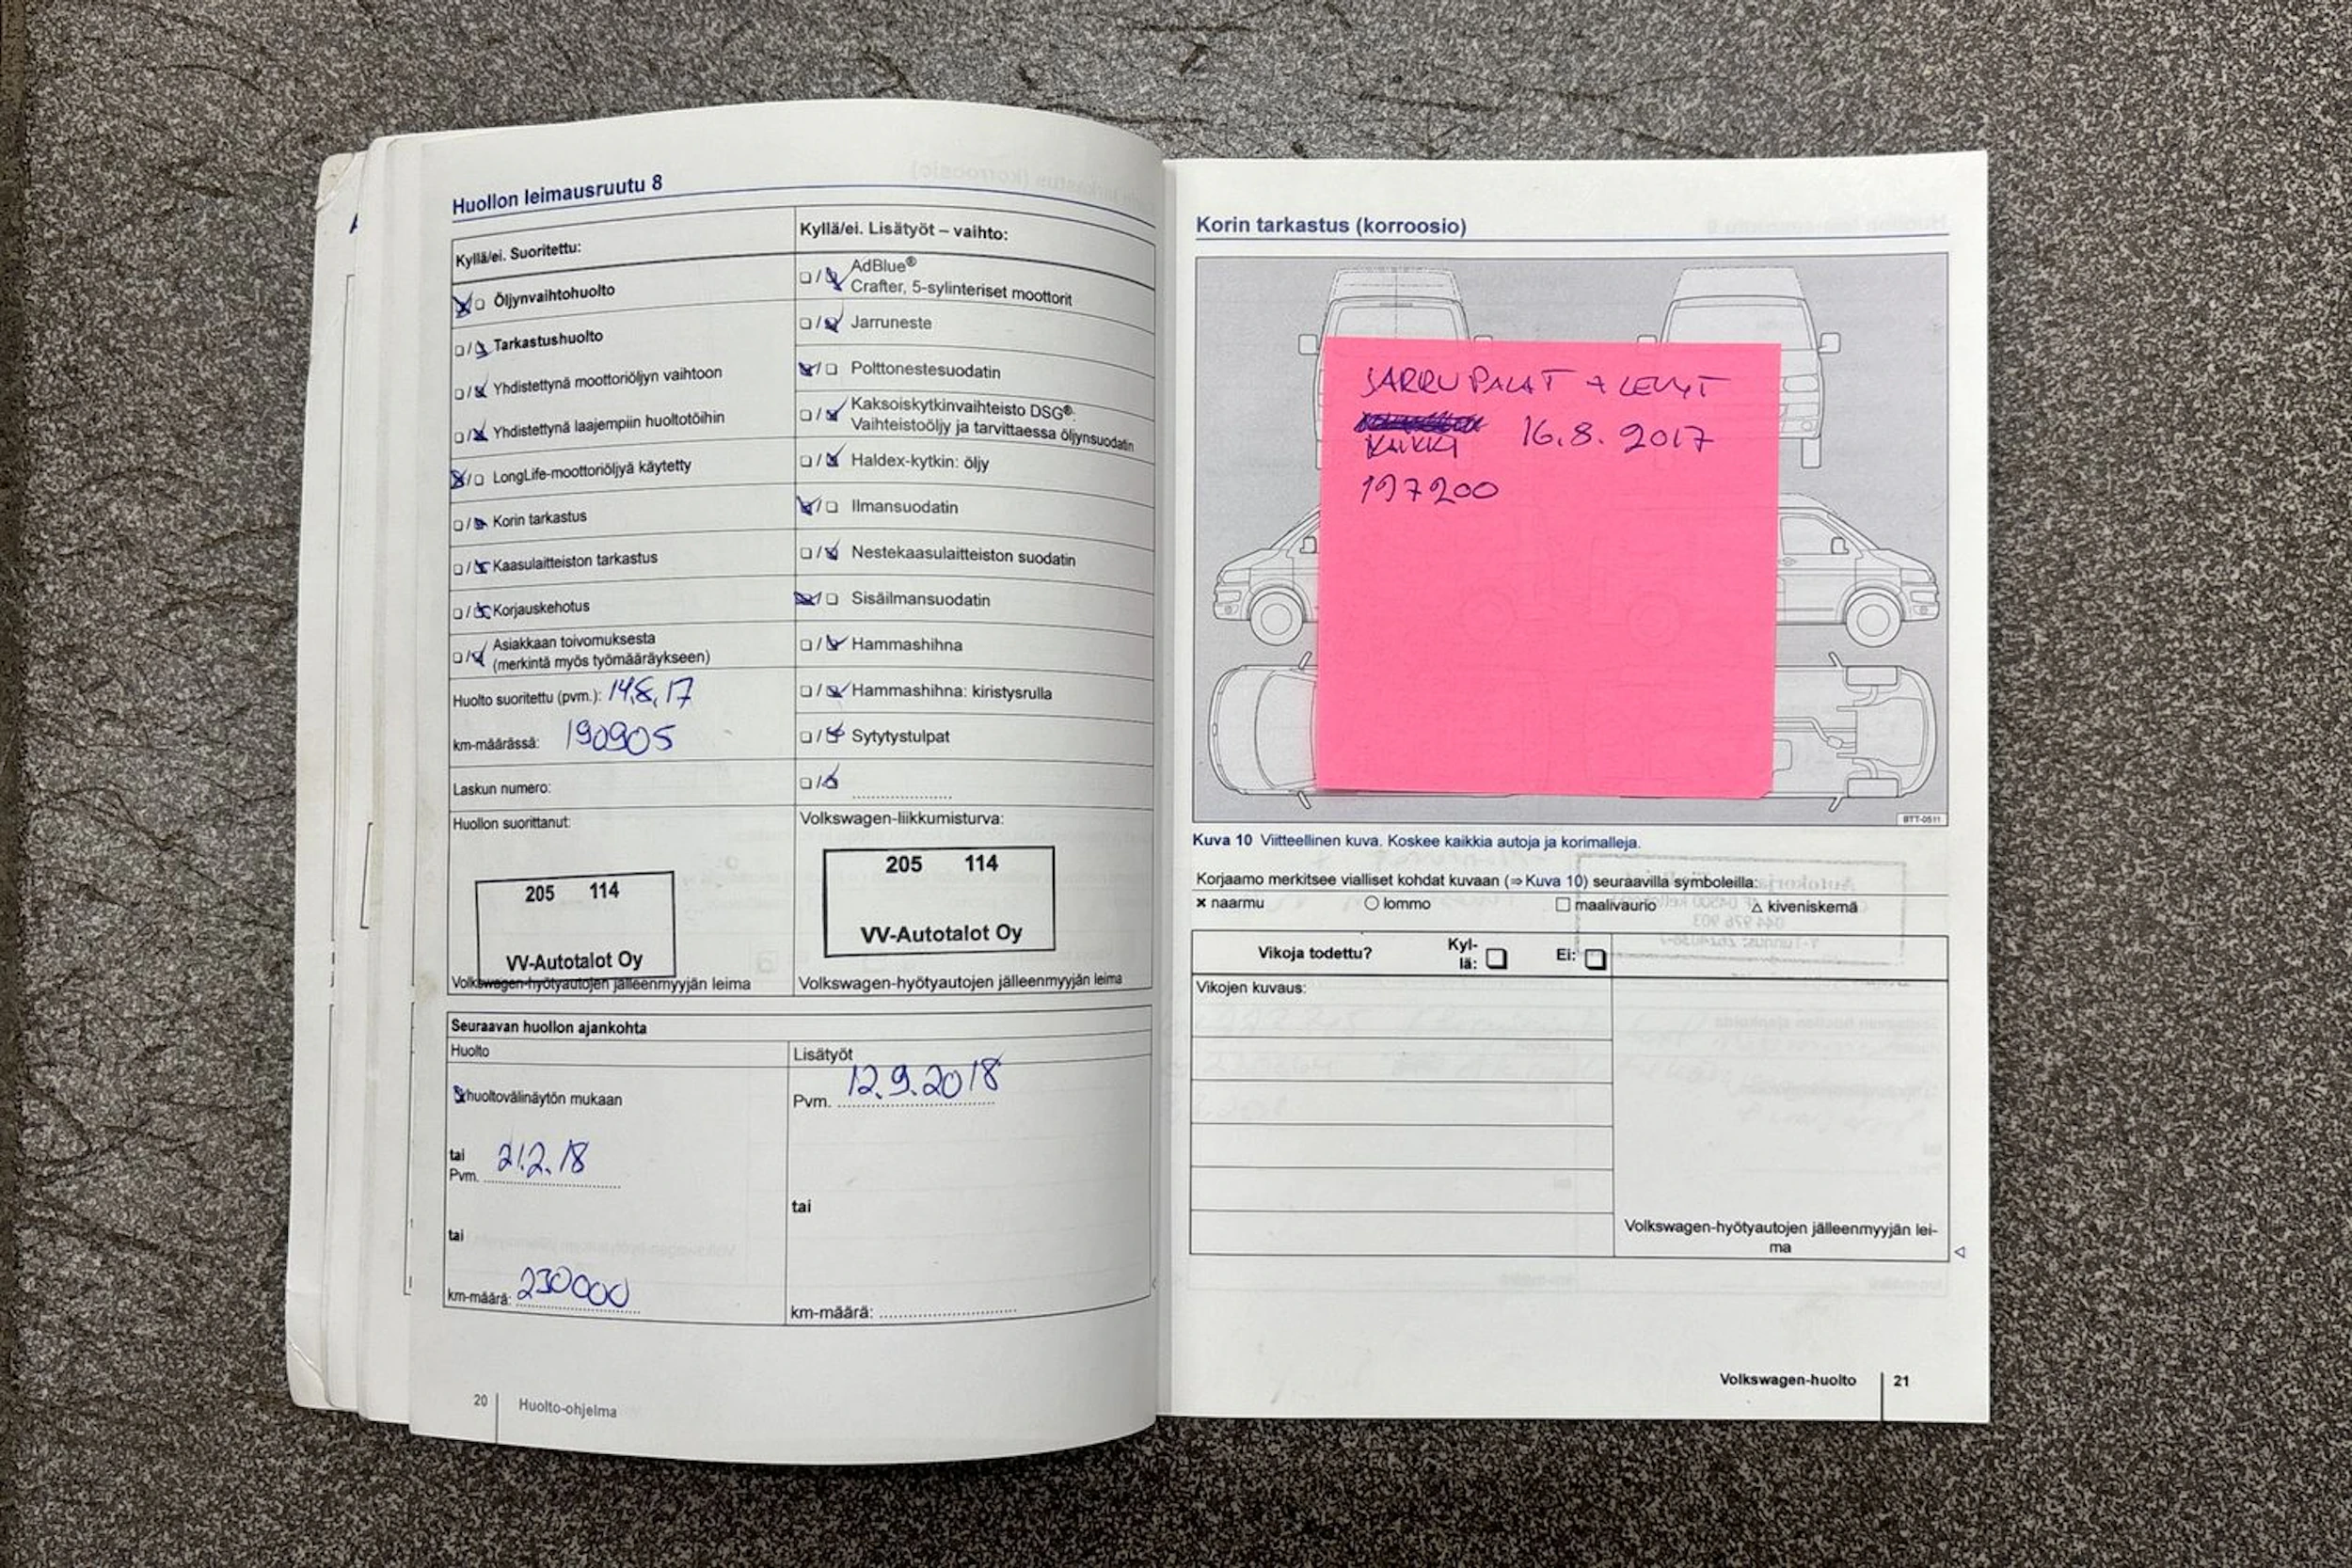 Huollon leimausruutu 8
Kyllä/ei. Suoritettu:
Öljynvaihtohuolto
Tarkastushuolto
Yhdistettynä moottoriöljyn vaihtoon
Yhdistettynä laajempiin huoltotöihin
LongLife-moottoriöljyä käytetty
Korin tarkastus
Kaasulaitteiston tarkastus
Korjauskehotus
Asiakkaan toivomuksesta
(merkintä myös työmääräykseen)
Huolto suoritettu (pvm.): 14.8.17
km-määrässä: 190905
Laskun numero:
Huollon suorittanut:
205 114
VV-Autotalot Oy
Volkswagen-hyötyautojen jälleenmyyjän leima
Kyllä/ei. Lisätyöt – vaihto:
AdBlue®
Crafter, 5-sylinteriset moottorit
Jarruneste
Polttonestesuodatin
Kaksoiskytkinvaihteisto DSG®.
Vaihteistoöljy ja tarvittaessa öljynsuodatin
Haldex-kytkin: öljy
Ilmansuodatin
Nestekaasulaitteiston suodatin
Sisäilmansuodatin
Hammashihna
Hammashihna: kiristysrulla
Sytytystulpat
Volkswagen-liikkumisturva:
205 114
VV-Autotalot Oy
Volkswagen-hyötyautojen jälleenmyyjän leima
Seuraavan huollon ajankohta
Huolto
huoltovälinäytön mukaan
tai
Pvm. 21.2.18
tai
km-määrä: 230000
Lisätyöt
Pvm. 12.9.2018
tai
km-määrä:
20 Huolto-ohjelma
Korin tarkastus (korroosio)
JARRUPALAT + LEVYT
KAIKKI 16.8.2017
197200
BTT-0511
Kuva 10 Viitteellinen kuva. Koskee kaikkia autoja ja korimalleja.
Korjaamo merkitsee vialliset kohdat kuvaan (⇒ Kuva 10) seuraavilla symboleilla:
× naarmu ○ lommo □ maalivaurio △ kiveniskemä
Vikoja todettu? Kyl-
lä: Ei:
Vikojen kuvaus:
Volkswagen-hyötyautojen jälleenmyyjän lei-
ma
Volkswagen-huolto 21